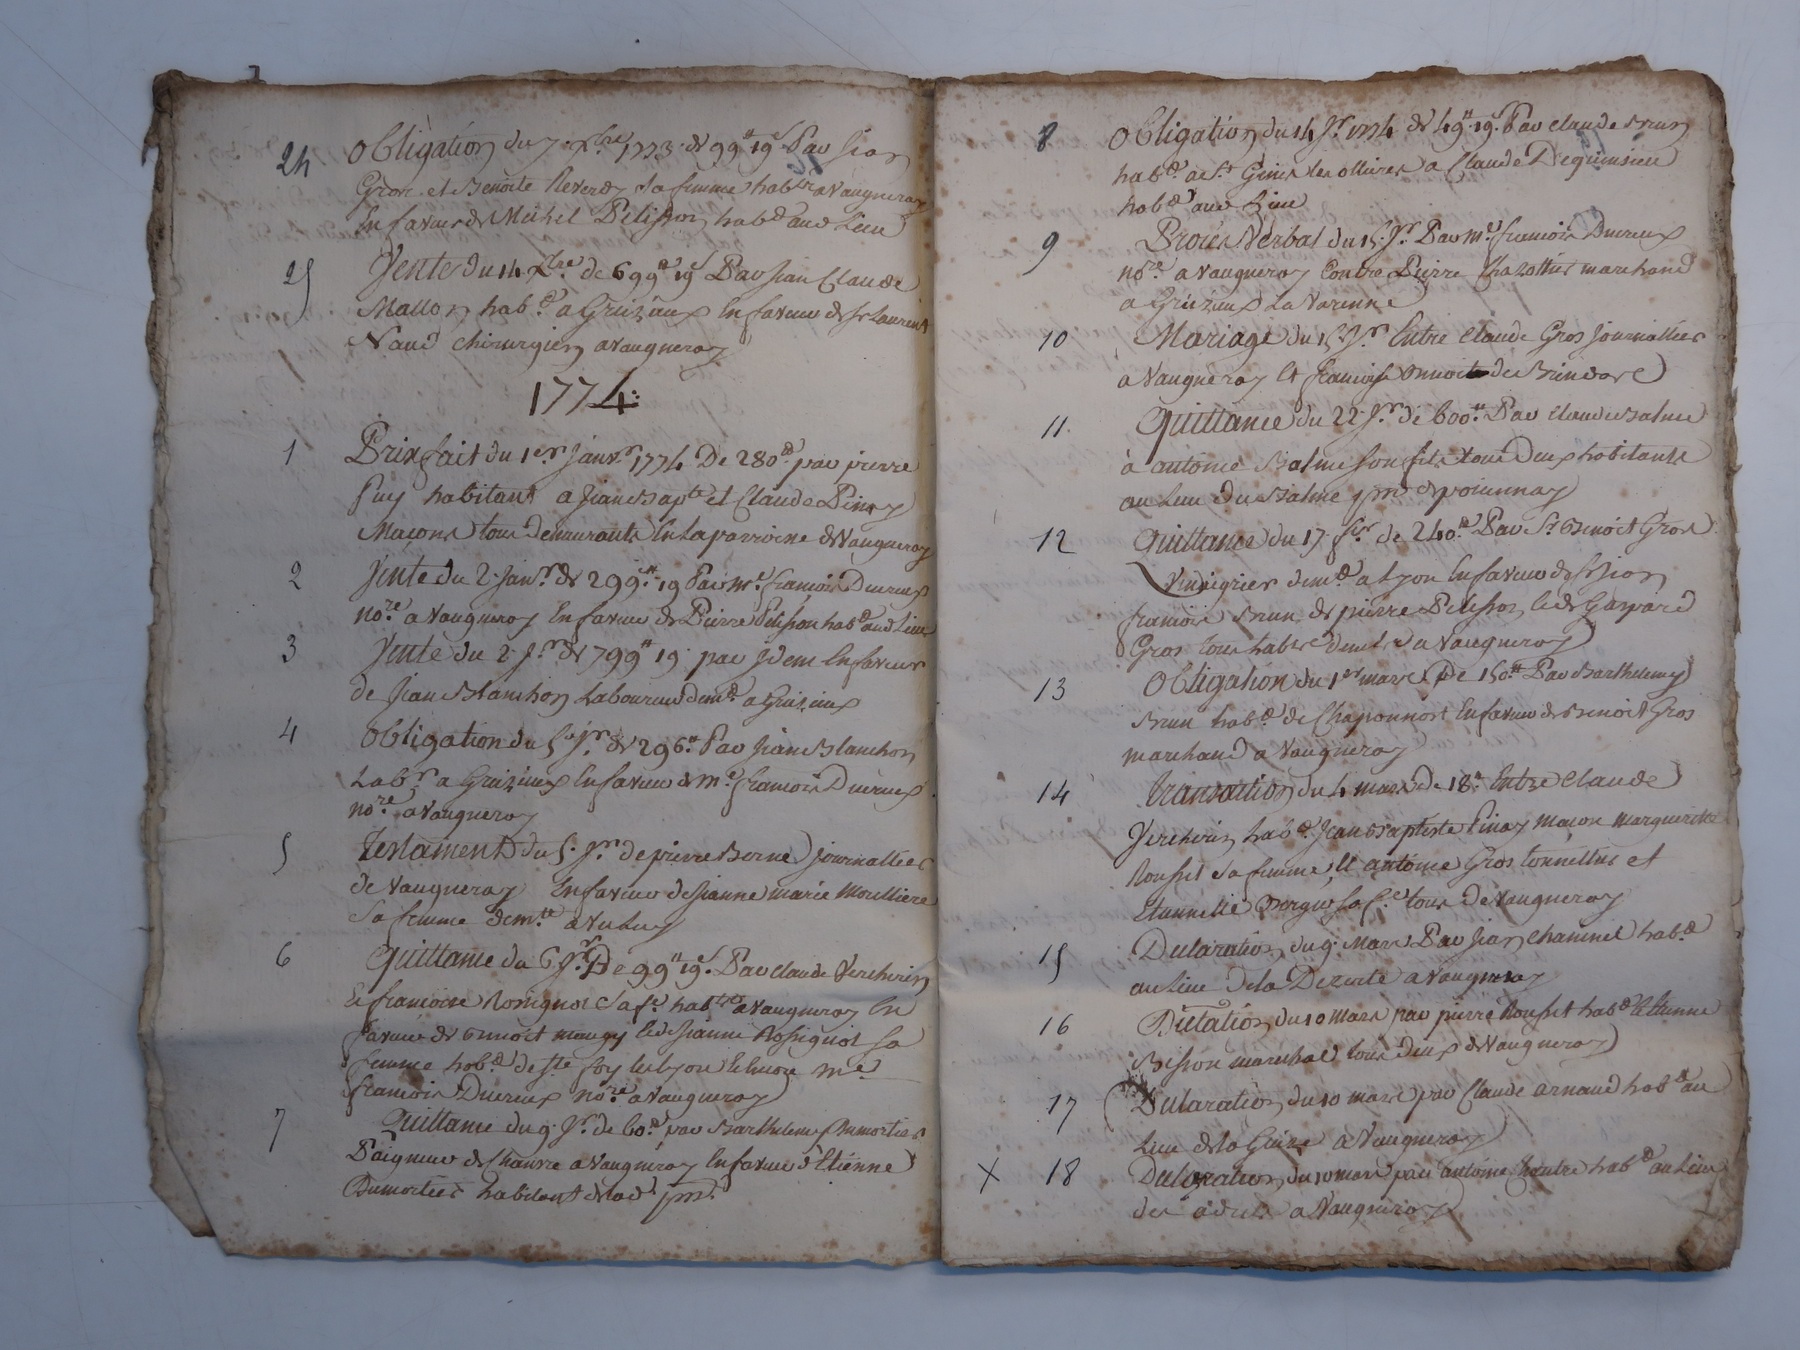 24 Obligation du 7 Xbre 1773 de 99# 19s Par Jean
Gros et Benoite Reverdy sa femme habts a Vaugneray
En faveur de Michel Pelisson habd aud Lieu
25 Vente du 14 Xbre de 699# 19s Par Jean Claude
Mallon habd a Grezieux En faveur de Sr Laurent
Naud chirurgien a Vaugneray
1774:
1 Prixfait du 1er Janvr 1774 De 280# par pierre
Puy habitant a Jean Bapte et Claude Pinay
Maçons tous demeurants En La parroisse de Vaugneray
2 Vente du 2 Janvr de 299# 19 Par Me françois Ducreux
nore a Vaugneray En faveur de Pierre Pelisson habd aud Lieu
3 Vente du 2 Jr de 799# 19 par Idem En faveur
de Jean Blanchon Laboureur demt a Grezieux
4 Obligation du 5e Jr de 296# Par Jean Blanchon
Labr a Grezieux En faveur de Me françois Ducreux
nore a Vaugneray
5 Testament du 5 Jr de pierre Borne journallier
de Vaugneray En faveur de Jeanne marie Morelliere
Sa femme demte
6 Quittance du 6 Jr De 99# 19s Par Claude Vercherin
Et francoise Rosignol Sa fe habts a Vaugneray En
faveur de Benoit mougy et de Jeanne Rossignol Sa
femme habd de ste foy les Lyon Encore Me
françois Ducreux nore a Vaugneray
7 Quittance du 9 Jr de 60# par Barthelemy Dumortier
Peigneur de Chanvre a Vaugneray En faveur d'Etienne
Dumortier habitant de lad psse
8 Obligation du 14 Jr 1774 de 49# 19s Par Claude Brun
habd a St Genis les ollieres a Claude Deguimieu
habd aud Lieu
9 Procès Verbal du 15 Jr Par Me françois Ducreux
nore a Vaugneray Contre Pierre Chazottier marchand
a Grezieux La Varenne
10 Mariage du 15 Jr Entre Claude Gros Journallier
a Vaugneray Et françoise Benoit de Brindas
11 Quittance du 22 Jr de 600# Par Claude Balme
à antoine Balme Son fils tous Deux habitants
au Lieu du Balme psse de poiennay
12 Quittance du 17 fr de 240# Par Sr Benoit Gros
Vinaigrier demt a Lyon En faveur de Jean
françois Brun de pierre Pelisson et de Gaspard
Gros tous habts a Vaugneray
13 Obligation du 1er mars De 150# Par Barthelemy
Brun habd de Chaponnost En faveur de Benoit Gros
marchand a Vaugneray
14 transaction du 4 mars de 18# Entre Claude
Vercherin habd Jean Baptiste Pinay maçon Marguerite
Rousset Sa femme, Et antoine Gros tonnellier et
Etiennette Sa fe tous de Vaugneray
15 Declaration du 9 Mars Par Jean Chaminel habd
au Lieu de la Dezerte a Vaugneray
16 Dictation du 10 mars par pierre Rousset habd Et Etienne
Bisson marechal tous deux de Vaugneray
17 Declaration du 10 mars par Claude arnaud habd au
Lieu de la a Vaugneray
X 18 Declaration du 10 mars par antoine habd au Lieu
des a Vaugneray